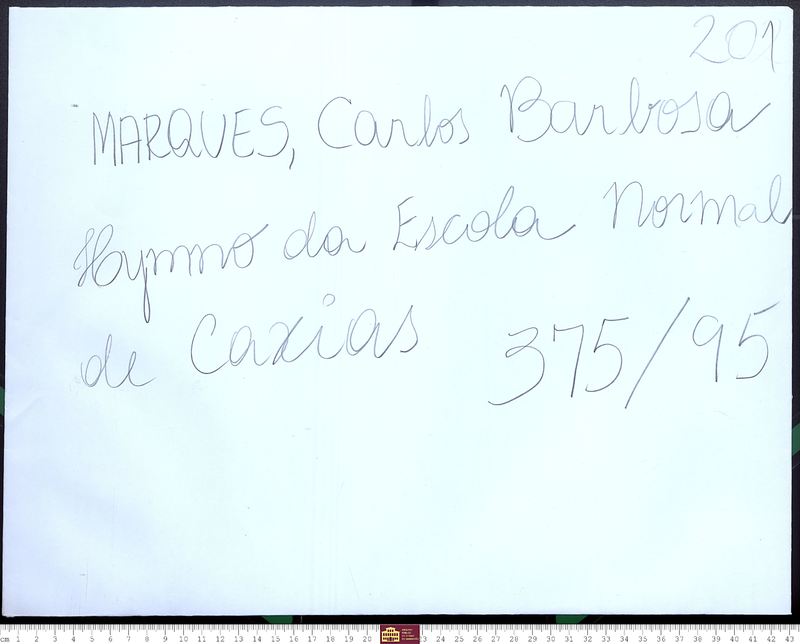 201
MARQUES, Carlos Barbosa
Hymno da Escola Normal
de Caxias 375/95
cm 1 2 3 4 5 6 7 8 9 10 11 12 13 14 15 16 17 18 19 20 23 24 25 26 27 28 29 30 31 32 33 34 35 36 37 38 39 40 41 42